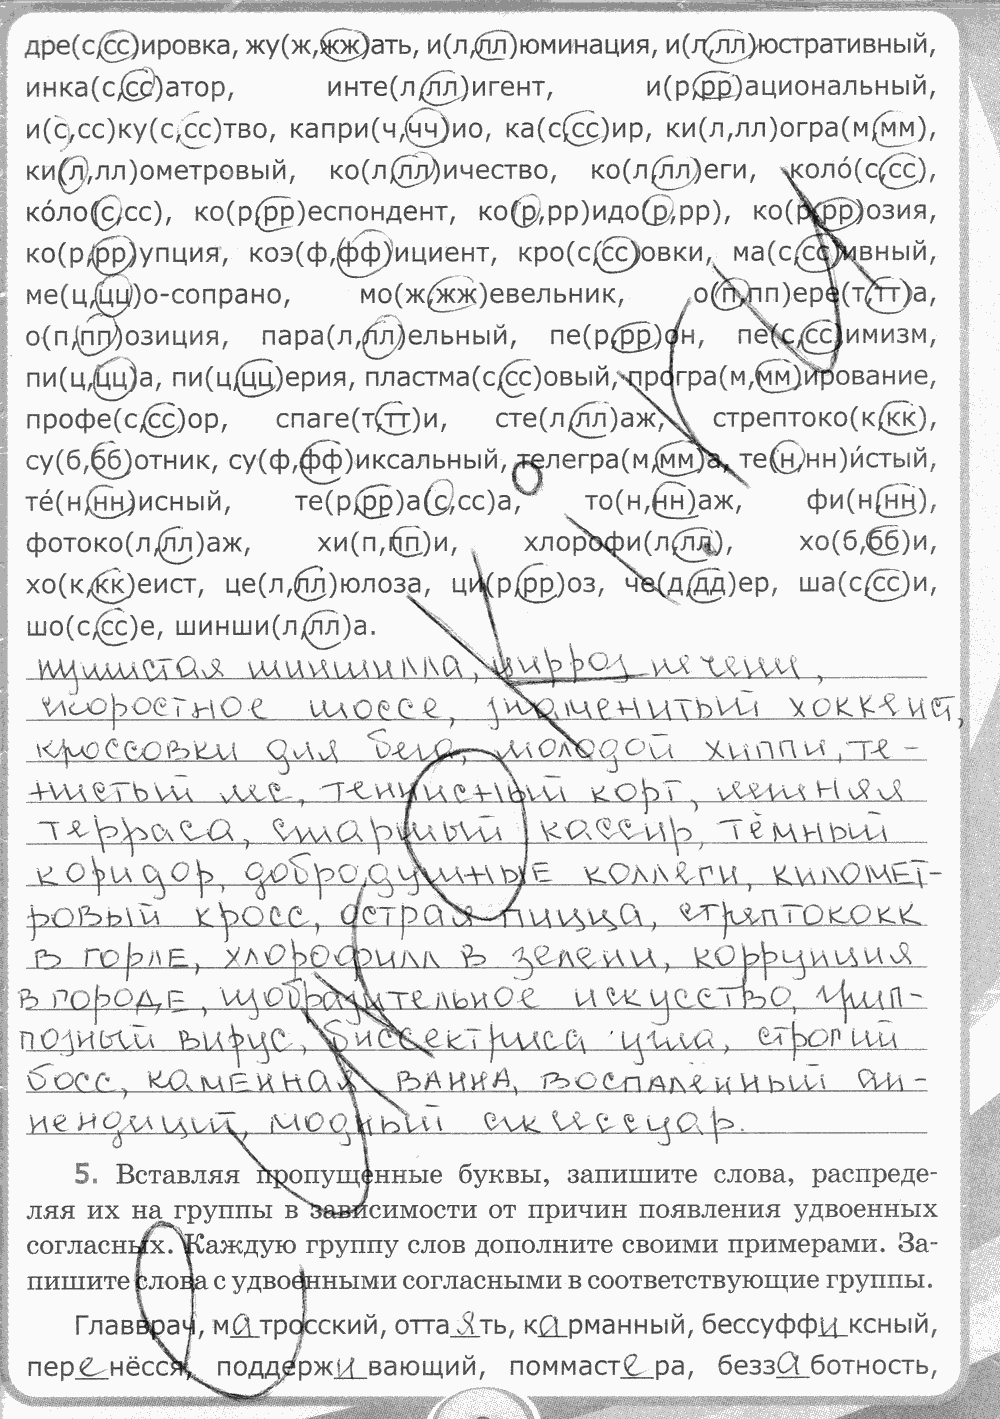 дре(с,сс)ировка, жу(ж,жж)ать, и(л,лл)юминация, и(л,лл)юстративный,
инка(с,сс)атор, инте(л,лл)игент, и(р,рр)ациональный,
и(с,сс)ку(с,сс)тво, капри(ч,чч)ио, ка(с,сс)ир, ки(л,лл)огра(м,мм),
ки(л,лл)ометровый, ко(л,лл)ичество, ко(л,лл)еги, коло́(с,сс),
ко́ло(с,сс), ко(р,рр)еспондент, ко(р,рр)идо(р,рр), ко(р,рр)озия,
ко(р,рр)упция, коэ(ф,фф)ициент, кро(с,сс)овки, ма(с,сс)ивный,
ме(ц,цц)о-сопрано, мо(ж,жж)евельник, о(п,пп)ере(т,тт)а,
о(п,пп)озиция, пара(л,лл)ельный, пе(р,рр)он, пе(с,сс)имизм,
пи(ц,цц)а, пи(ц,цц)ерия, пластма(с,сс)овый, програ(м,мм)ирование,
профе(с,сс)ор, спаге(т,тт)и, сте(л,лл)аж, стрептоко(к,кк),
су(б,бб)отник, су(ф,фф)иксальный, телегра(м,мм)а, те(н,нн)и́стый,
те́(н,нн)исный, те(р,рр)а(с,сс)а, то(н,нн)аж, фи(н,нн),
фотоко(л,лл)аж, хи(п,пп)и, хлорофи(л,лл), хо(б,бб)и,
хо(к,кк)еист, це(л,лл)юлоза, ци(р,рр)оз, че(д,дд)ер, ша(с,сс)и,
шо(с,сс)е, шинши(л,лл)а.
пушистая шиншилла, цирроз печени,
скоростное шоссе, знаменитый хоккеист,
кроссовки для бега, молодой хиппи, те-
нистый лес, теннисный корт, летняя
терраса, старший кассир, тёмный
коридор, добродушные коллеги, километ-
ровый кросс, острая пицца, стрептококк
в горле, хлорофилл в зелени, коррупция
в городе, изобразительное искусство, грип-
позный вирус, биссектриса угла, строгий
босс, каменная ванна, воспалённый ап-
пендицит, модный аксессуар.
5. Вставляя пропущенные буквы, запишите слова, распреде-
ляя их на группы в зависимости от причин появления удвоенных
согласных. Каждую группу слов дополните своими примерами. За-
пишите слова с удвоенными согласными в соответствующие группы.
Главврач, матросский, оттаять, карманный, бессуффиксный,
перенёсся, поддерживающий, поммастера, беззаботность,